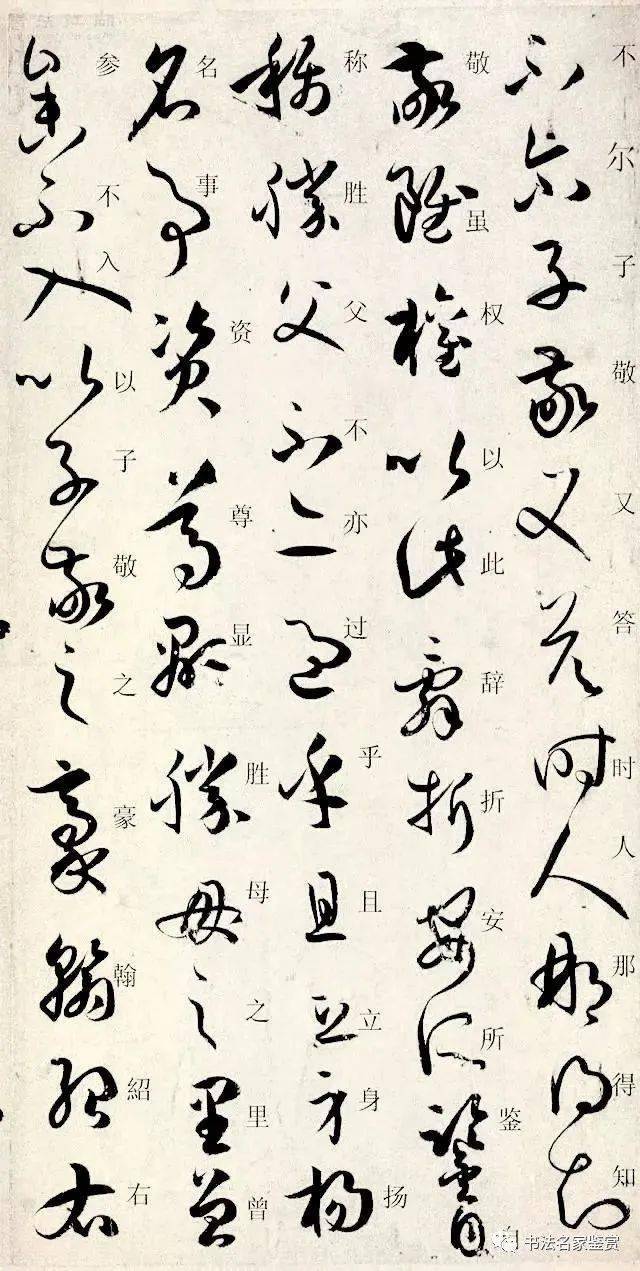 不尔子敬又答时人那得知
敬虽权以此辞折安所鉴自
称胜父不亦过乎且立身扬
名事资尊显胜母之里曾
参不入以子敬之豪翰紹右
书法名家鉴赏